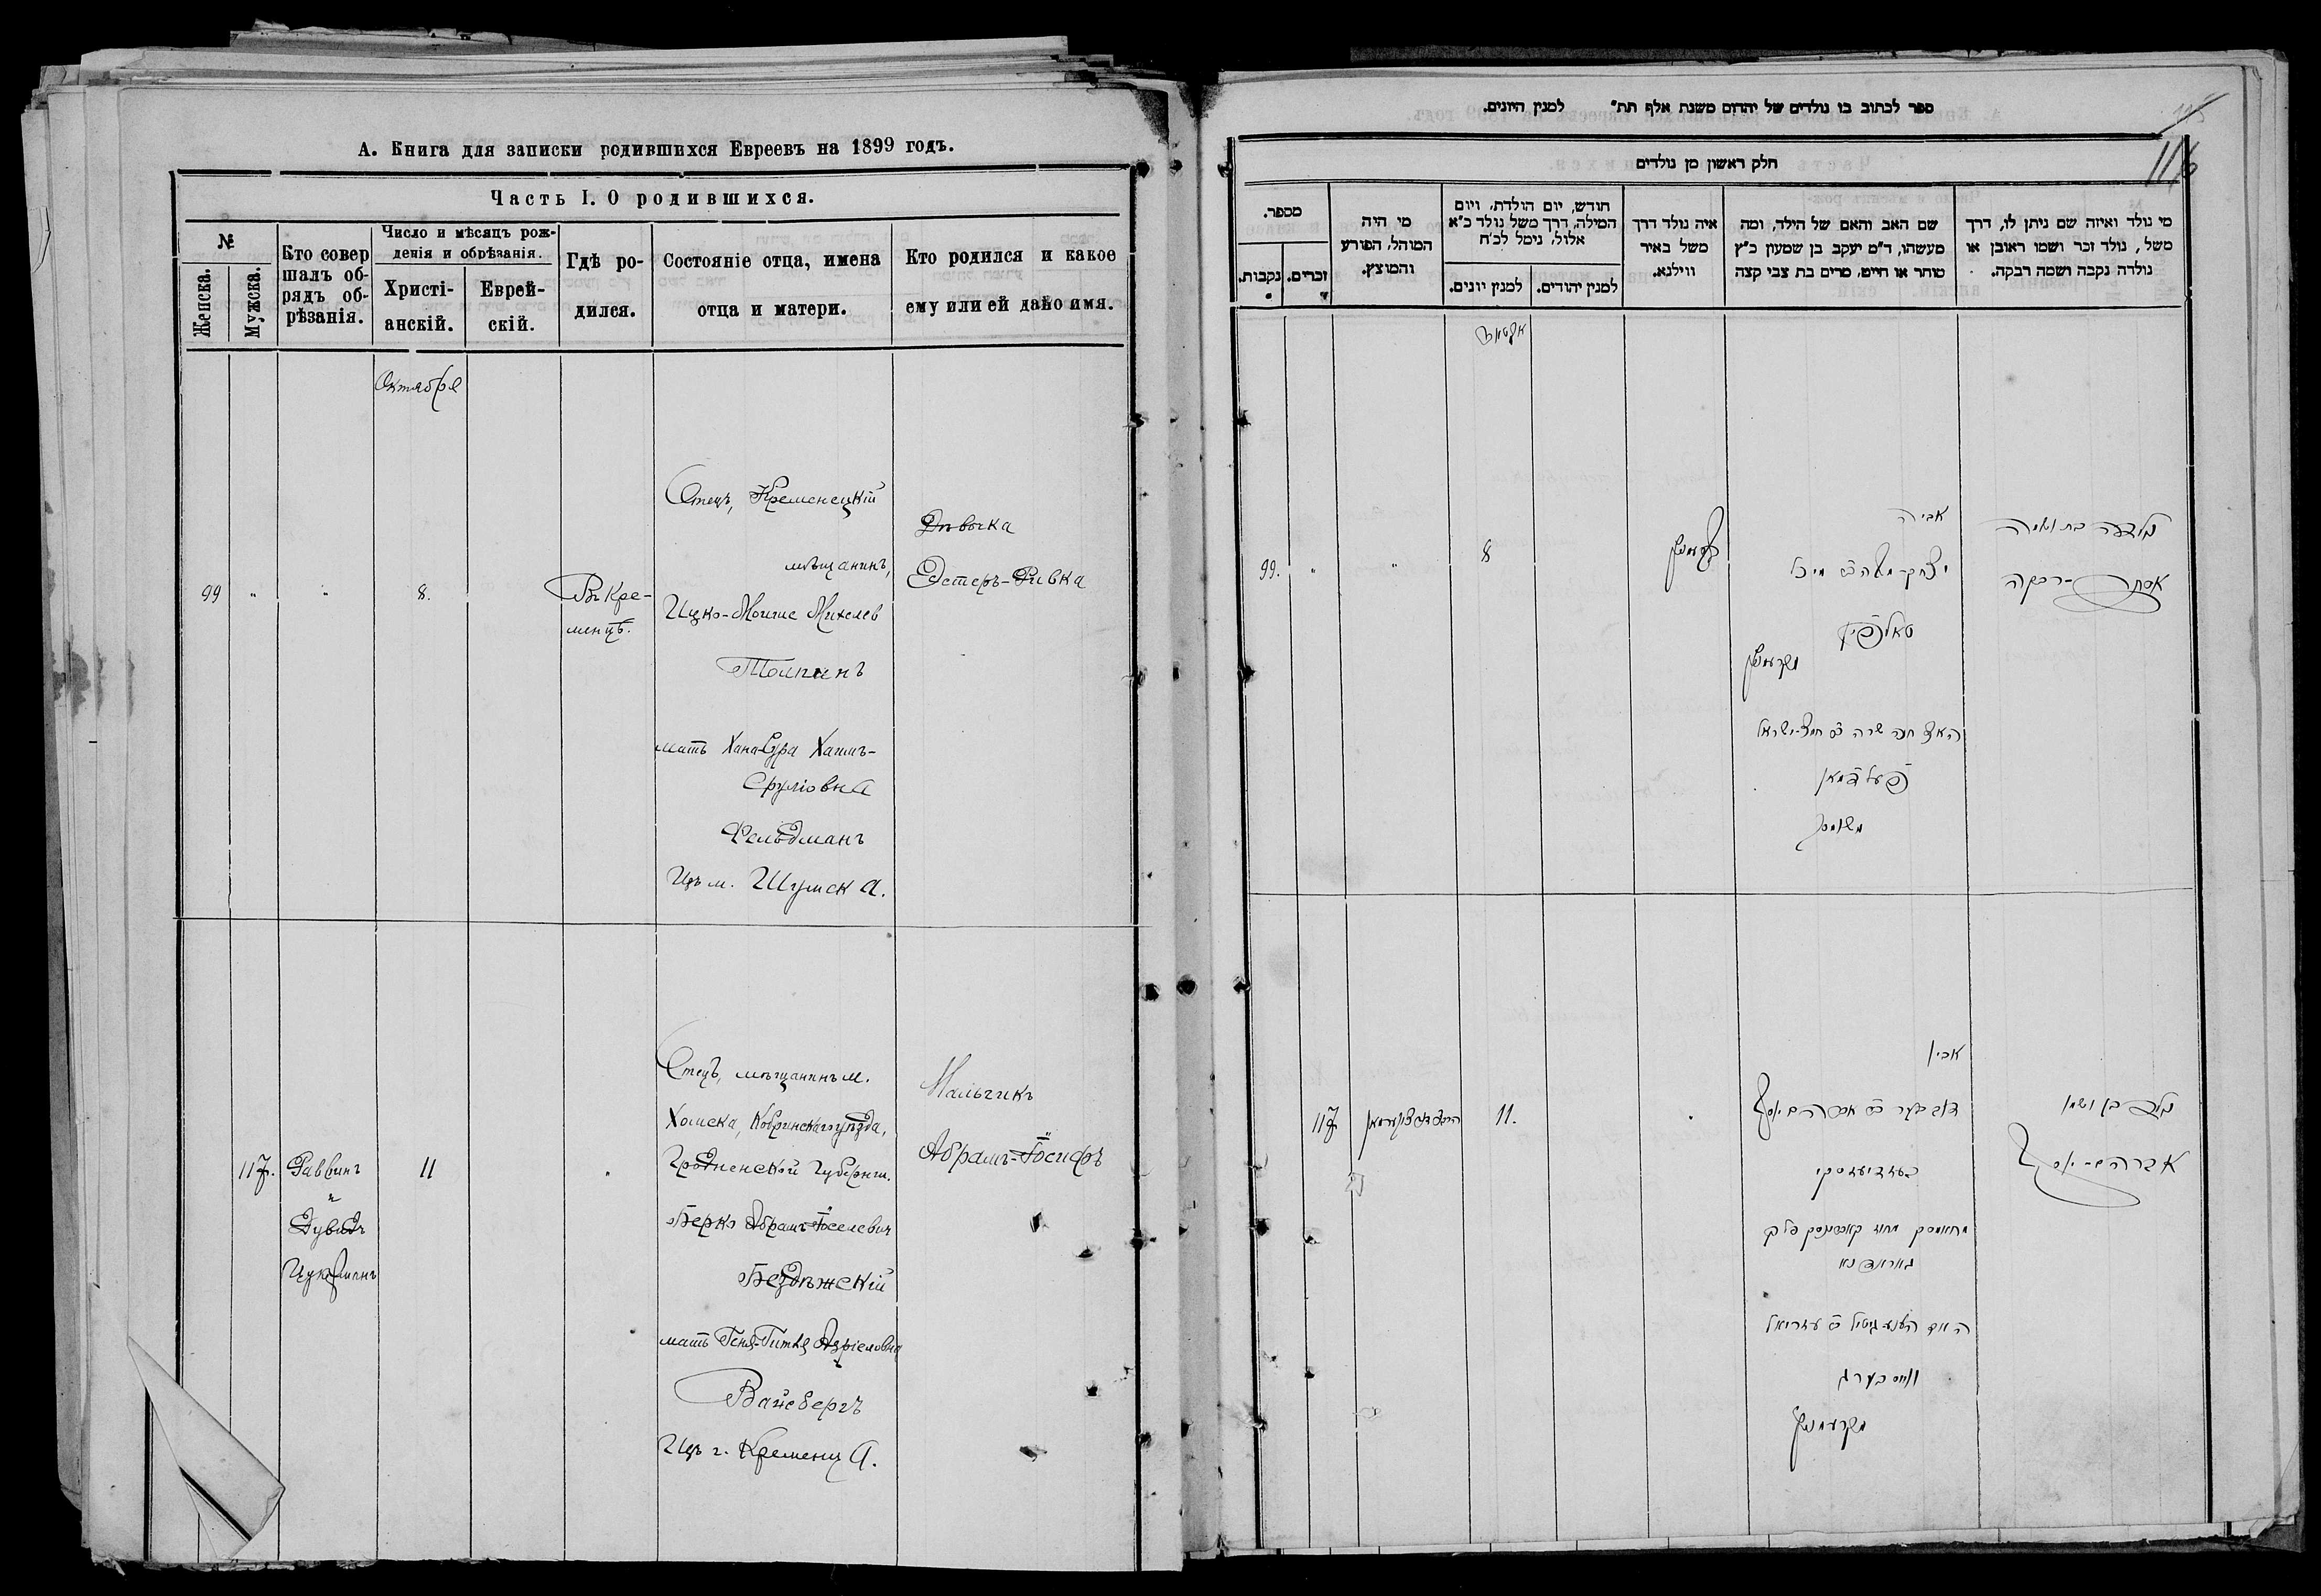 А. Книга для записки родившихся Евреевъ на 1899 годъ.
Часть I. О родившихся.
№
Женска.
Мужска.
Кто совер
шалъ об-
рядъ об-
рѣзанія.
Число и мѣсяцъ рож-
денія и обрѣзанія.
Христі-
анскій.
Еврей-
скій.
Гдѣ ро-
дился.
Состояніе отца, имена
отца и матери.
Кто родился и какое
ему или ей дано имя.
Октября
99
"
"
8.
Въ Кре-
менцѣ.
Отецъ, Кременецкій
мѣщанинъ,
Ицко-Мошко Михелев
Толпинъ
мать Хана-Сура Хаимъ-
Сруліовна
Фельдманъ
Изъ м. Шумска.
Дѣвочка
Эстеръ-Ривка
117.
Раввинъ
"
Дувидъ
Цукерманъ
11
Отецъ, мѣщанинъ м.
Хомска, Кобринскаго уѣзда,
Гродненской Губерніи.
Берко Абрамъ-Іоселевич
Бездѣжскій
мать Геня-Гитля Азріеловна
Вайсбергъ
Изъ г. Кременца.
Мальчикъ
Абрамъ-Іосифъ
ספר לכתוב בו נולדים של יהדום משנת אלף תת״ למנין היונים.
116
חלק ראשון מן נולדים
מספר.
נקבות.
זכרים.
מי היה
המוהל, הפורע
והמוצץ.
חודש, יום הולדת, ויום
המילה, דרך משל נולד כ״א
אלול, נימל לכ״ח
למנין יונים.
למנין יהודים.
איה נולד דרך
משל באיר
ווילנא.
שם האב והאם של הילד, ומה
מעשהו, ד״מ יעקב בן שמעון כ״ץ
סוחר או חייט, מרים בת צבי קצה
מי נולד ואיזה שם ניתן לו, דרך
משל, נולד זכר ושמו ראובן או
נולדה נקבה ושמה רבקה.
99.
"
"
8
קרעמניץ
אביה
יצחק-משה ב״ מיכל
טאלפין
מקרעמניץ
האם חנה שרה ב״ חיים-ישראל
פעלדמאן
משומסק
נולדה בת ושמה
אסתר-רבקה
117
11.
אביו
דוב בער ב״ אברהם יוסף
מחאמסק מחוז קאברינסק פלך
גראדנא
האם העניא גיטיל ב״ עזריאל
ווייסבערג
מקרעמניץ
נולד בן ושמו
אברהם-יוסף